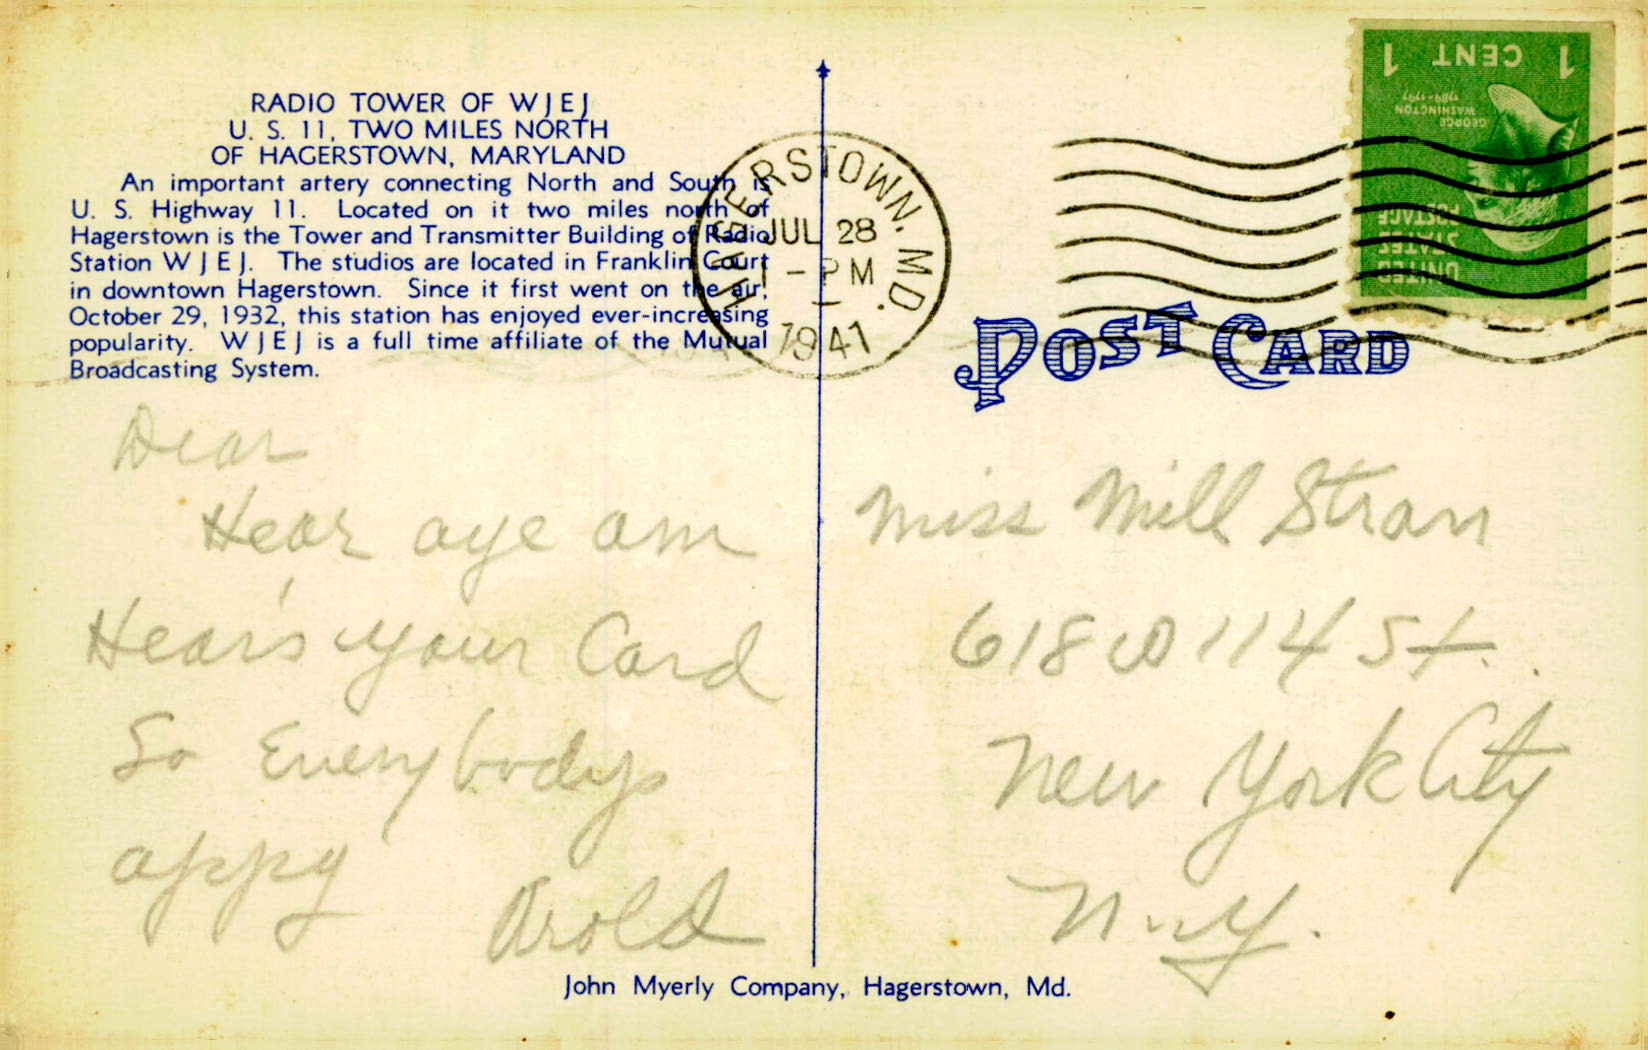 RADIO TOWER OF WJEJ
U. S. 11, TWO MILES NORTH
OF HAGERSTOWN, MARYLAND
An important artery connecting North and South is
U. S. Highway 11. Located on it two miles north of
Hagerstown is the Tower and Transmitter Building of Radio
Station W J E J. The studios are located in Franklin Court
in downtown Hagerstown. Since it first went on the air,
October 29, 1932, this station has enjoyed ever-increasing
popularity. W J E J is a full time affiliate of the Mutual
Broadcasting System.
HAGERSTOWN, MD.
JUL 28
PM
1941
1 CENT 1
GEORGE
WASHINGTON
1789-1797
UNITED
STATES
POSTAGE
POST CARD
Dear
Hear aye am
Hear's your Card
So Everybodys
appy
Arold
Miss Mill Stran
618 W 114 St.
New York City
N.Y.
John Myerly Company, Hagerstown, Md.